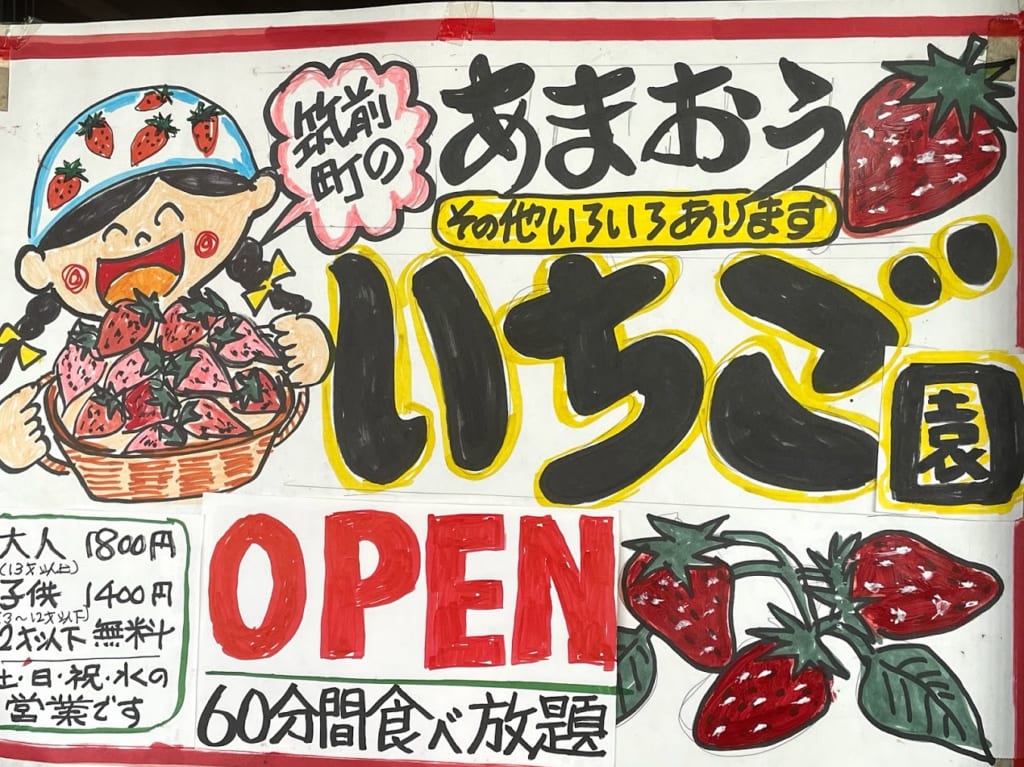 筑前
町の
あまおう
その他いろいろあります
いちご園
大人 1800円
(13才以上)
子供 1400円
(3～12才以下)
2才以下 無料
土・日・祝・水の
営業です
OPEN
60分間食べ放題